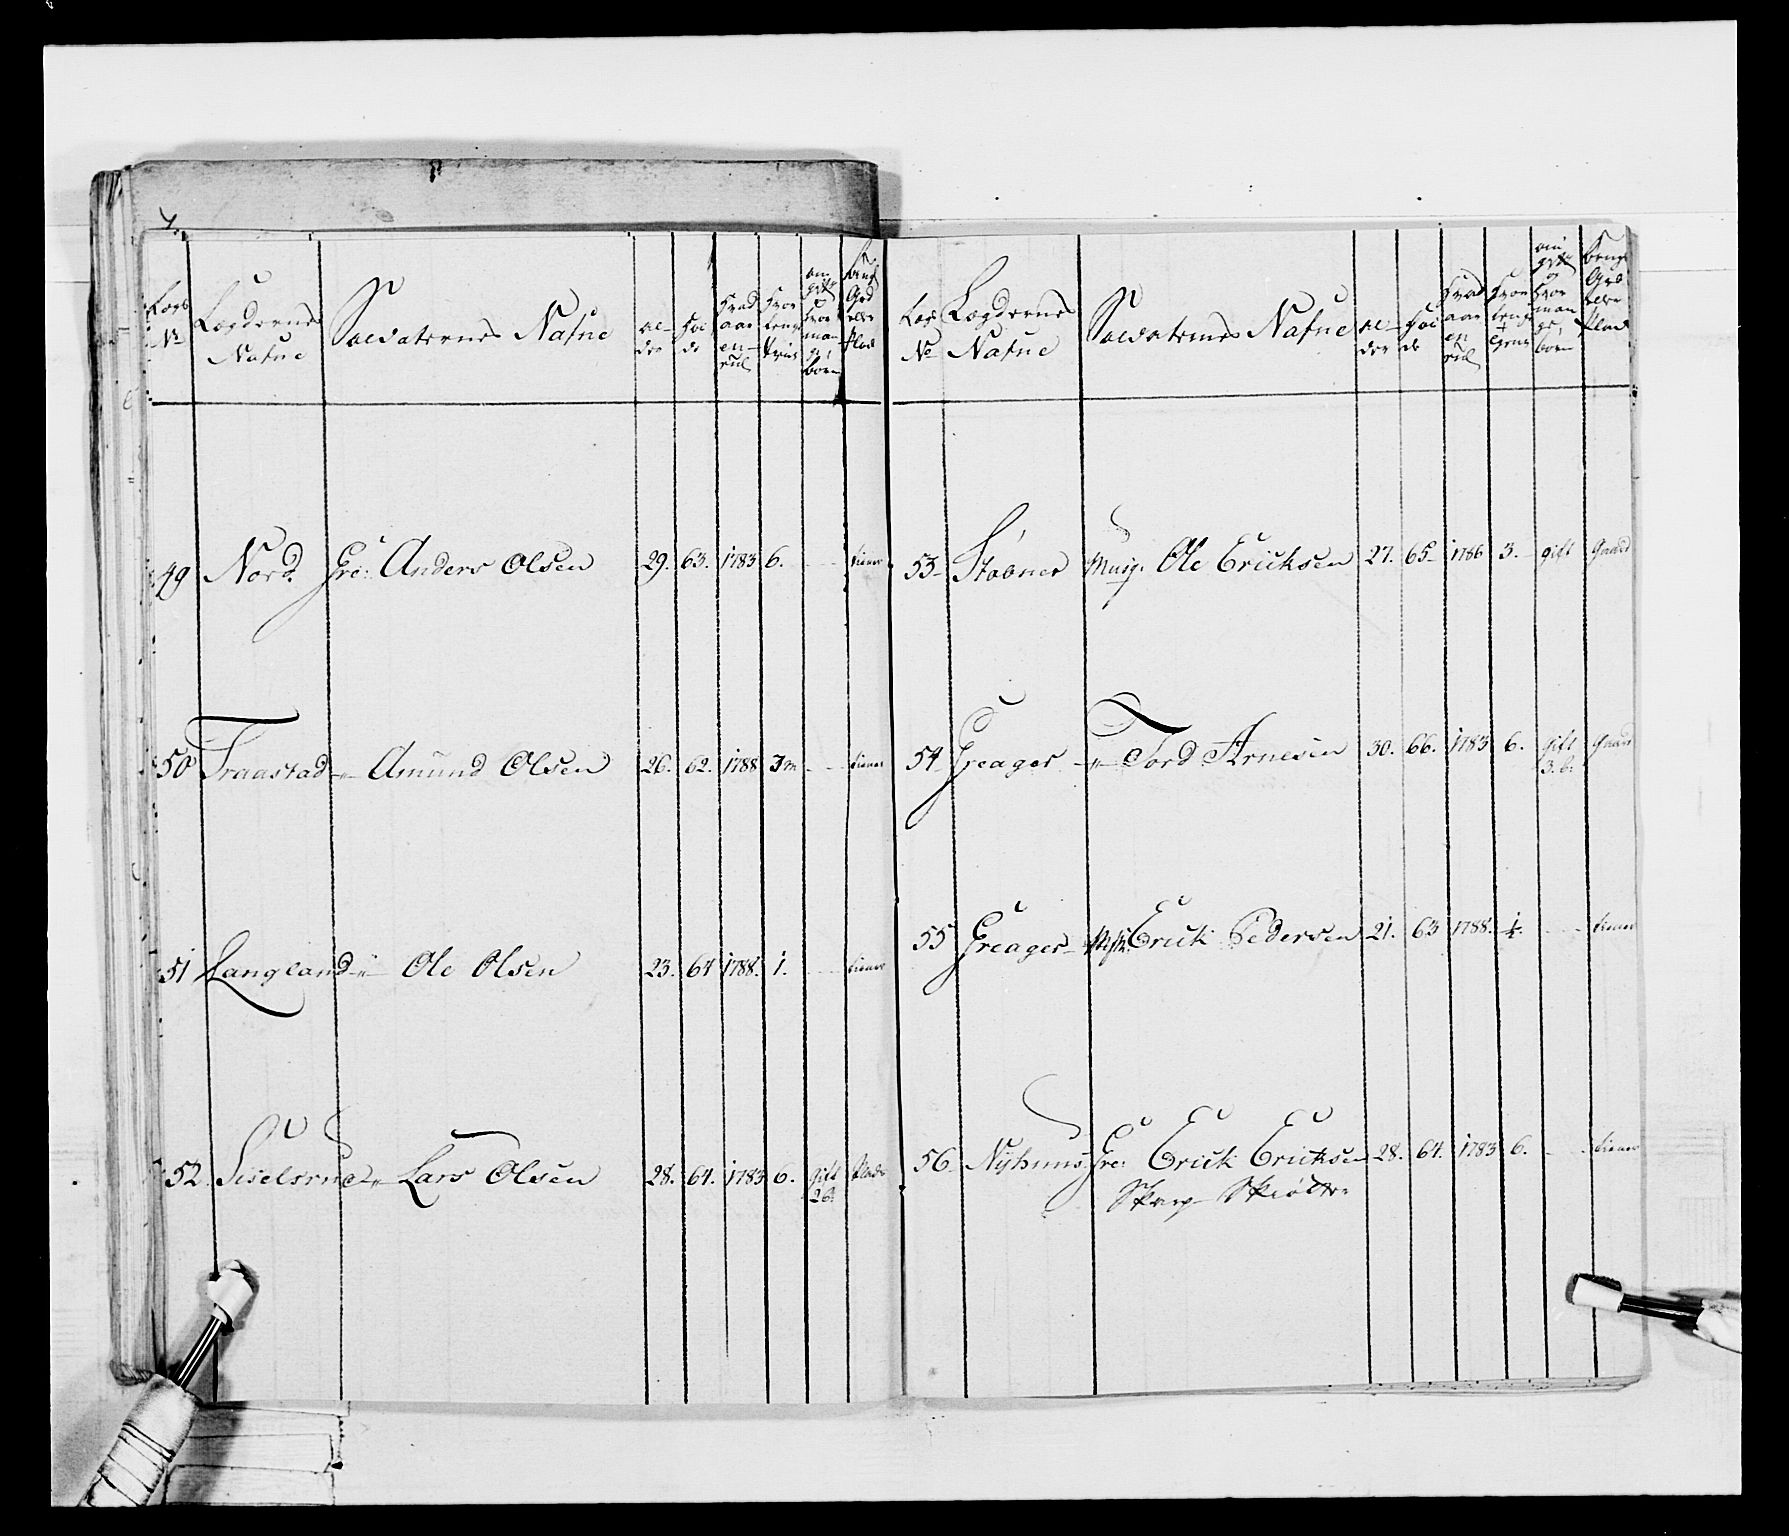 7.
Legs No Lægdernes Nafne Soldaternes Nafne al- der höi de hvad aar en- rul hvor leng tient om gift og hvor man ge börn brug Grd eller Plads
49 Nord Gre: Anders Olsen 29. 63. 1783 6. - - tiener
50 Fraastad -"- Amund Olsen 26. 62. 1788 3 m - - tiener
51 Langland -"- Ole Olsen 23. 64 1788. 1. - - tiener
52. Siselsrue -"- Lars Olsen 28. 64. 1783 6. gift 2 b. Plads
Leg No Lægdernes Nafne Soldaternes Nafne al- der höi de hvad aar en rul hvor leng tient om gift og hvor man ge börn brug Grd eller Plads
53 Stabner Musq. Ole Ericksen 27. 65 1786 3. gift Gaard
54 Greager -"- Tord Arnesen 30. 66. 1783 6. gift 3. b. Gaard
55 Greager Erick Pedersen 21. 63 1788. ½. - - tiener
56. Nyhuus Gre: Erick Ericksen 28. 64. 1783 6. - - tiener
Skarp Skiötter